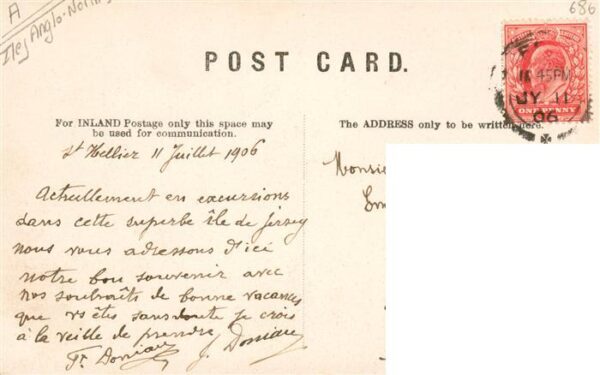 A
Iles Anglo-Norm
686
POST CARD.
For INLAND Postage only this space may
be used for communication.
The ADDRESS only to be written here.
ONE PENNY
45PM
JY 11
06
St Hellier 11 Juillet 1906
Monsie
Em
Actuellement en excursions
dans cette superbe île de Jersey
nous vous adressons d'ici
notre bon souvenir avec
nos souhaits de bonne vacances
que vs êtes sans doute je crois
à la veille de prendre